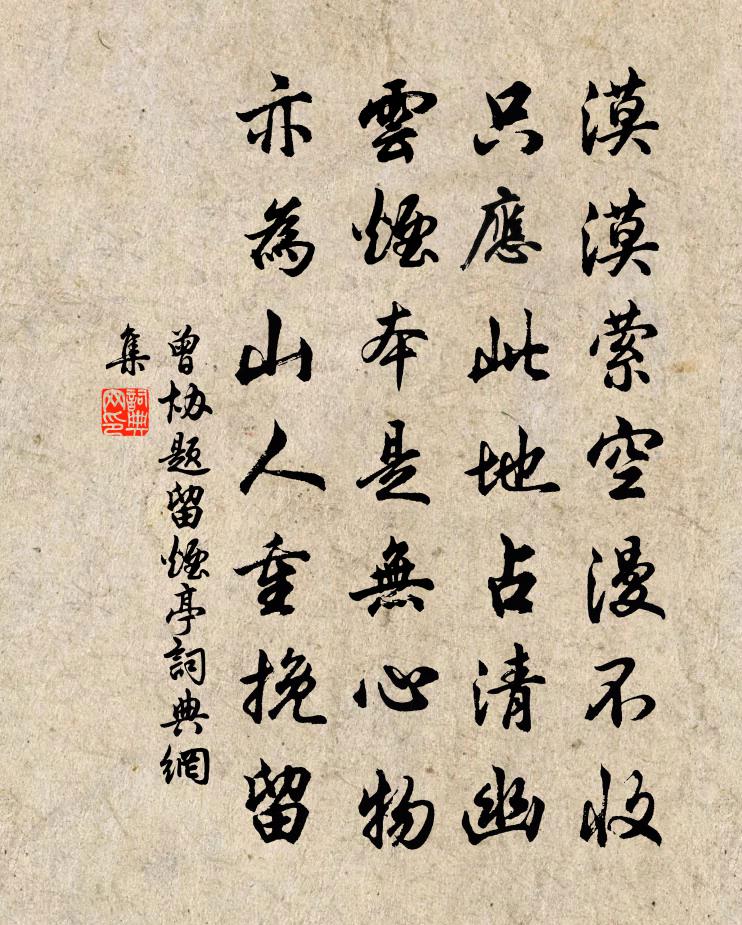 漠漠萦空漫不收
只應此地占清幽
雲煙本是無心物
亦為山人重挽留
曾协題留煙亭詞典網
集
詞典網印